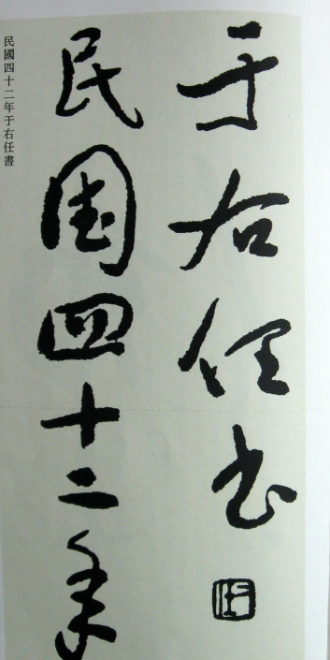 于右任書
民國四十二年
民國四十二年于右任書